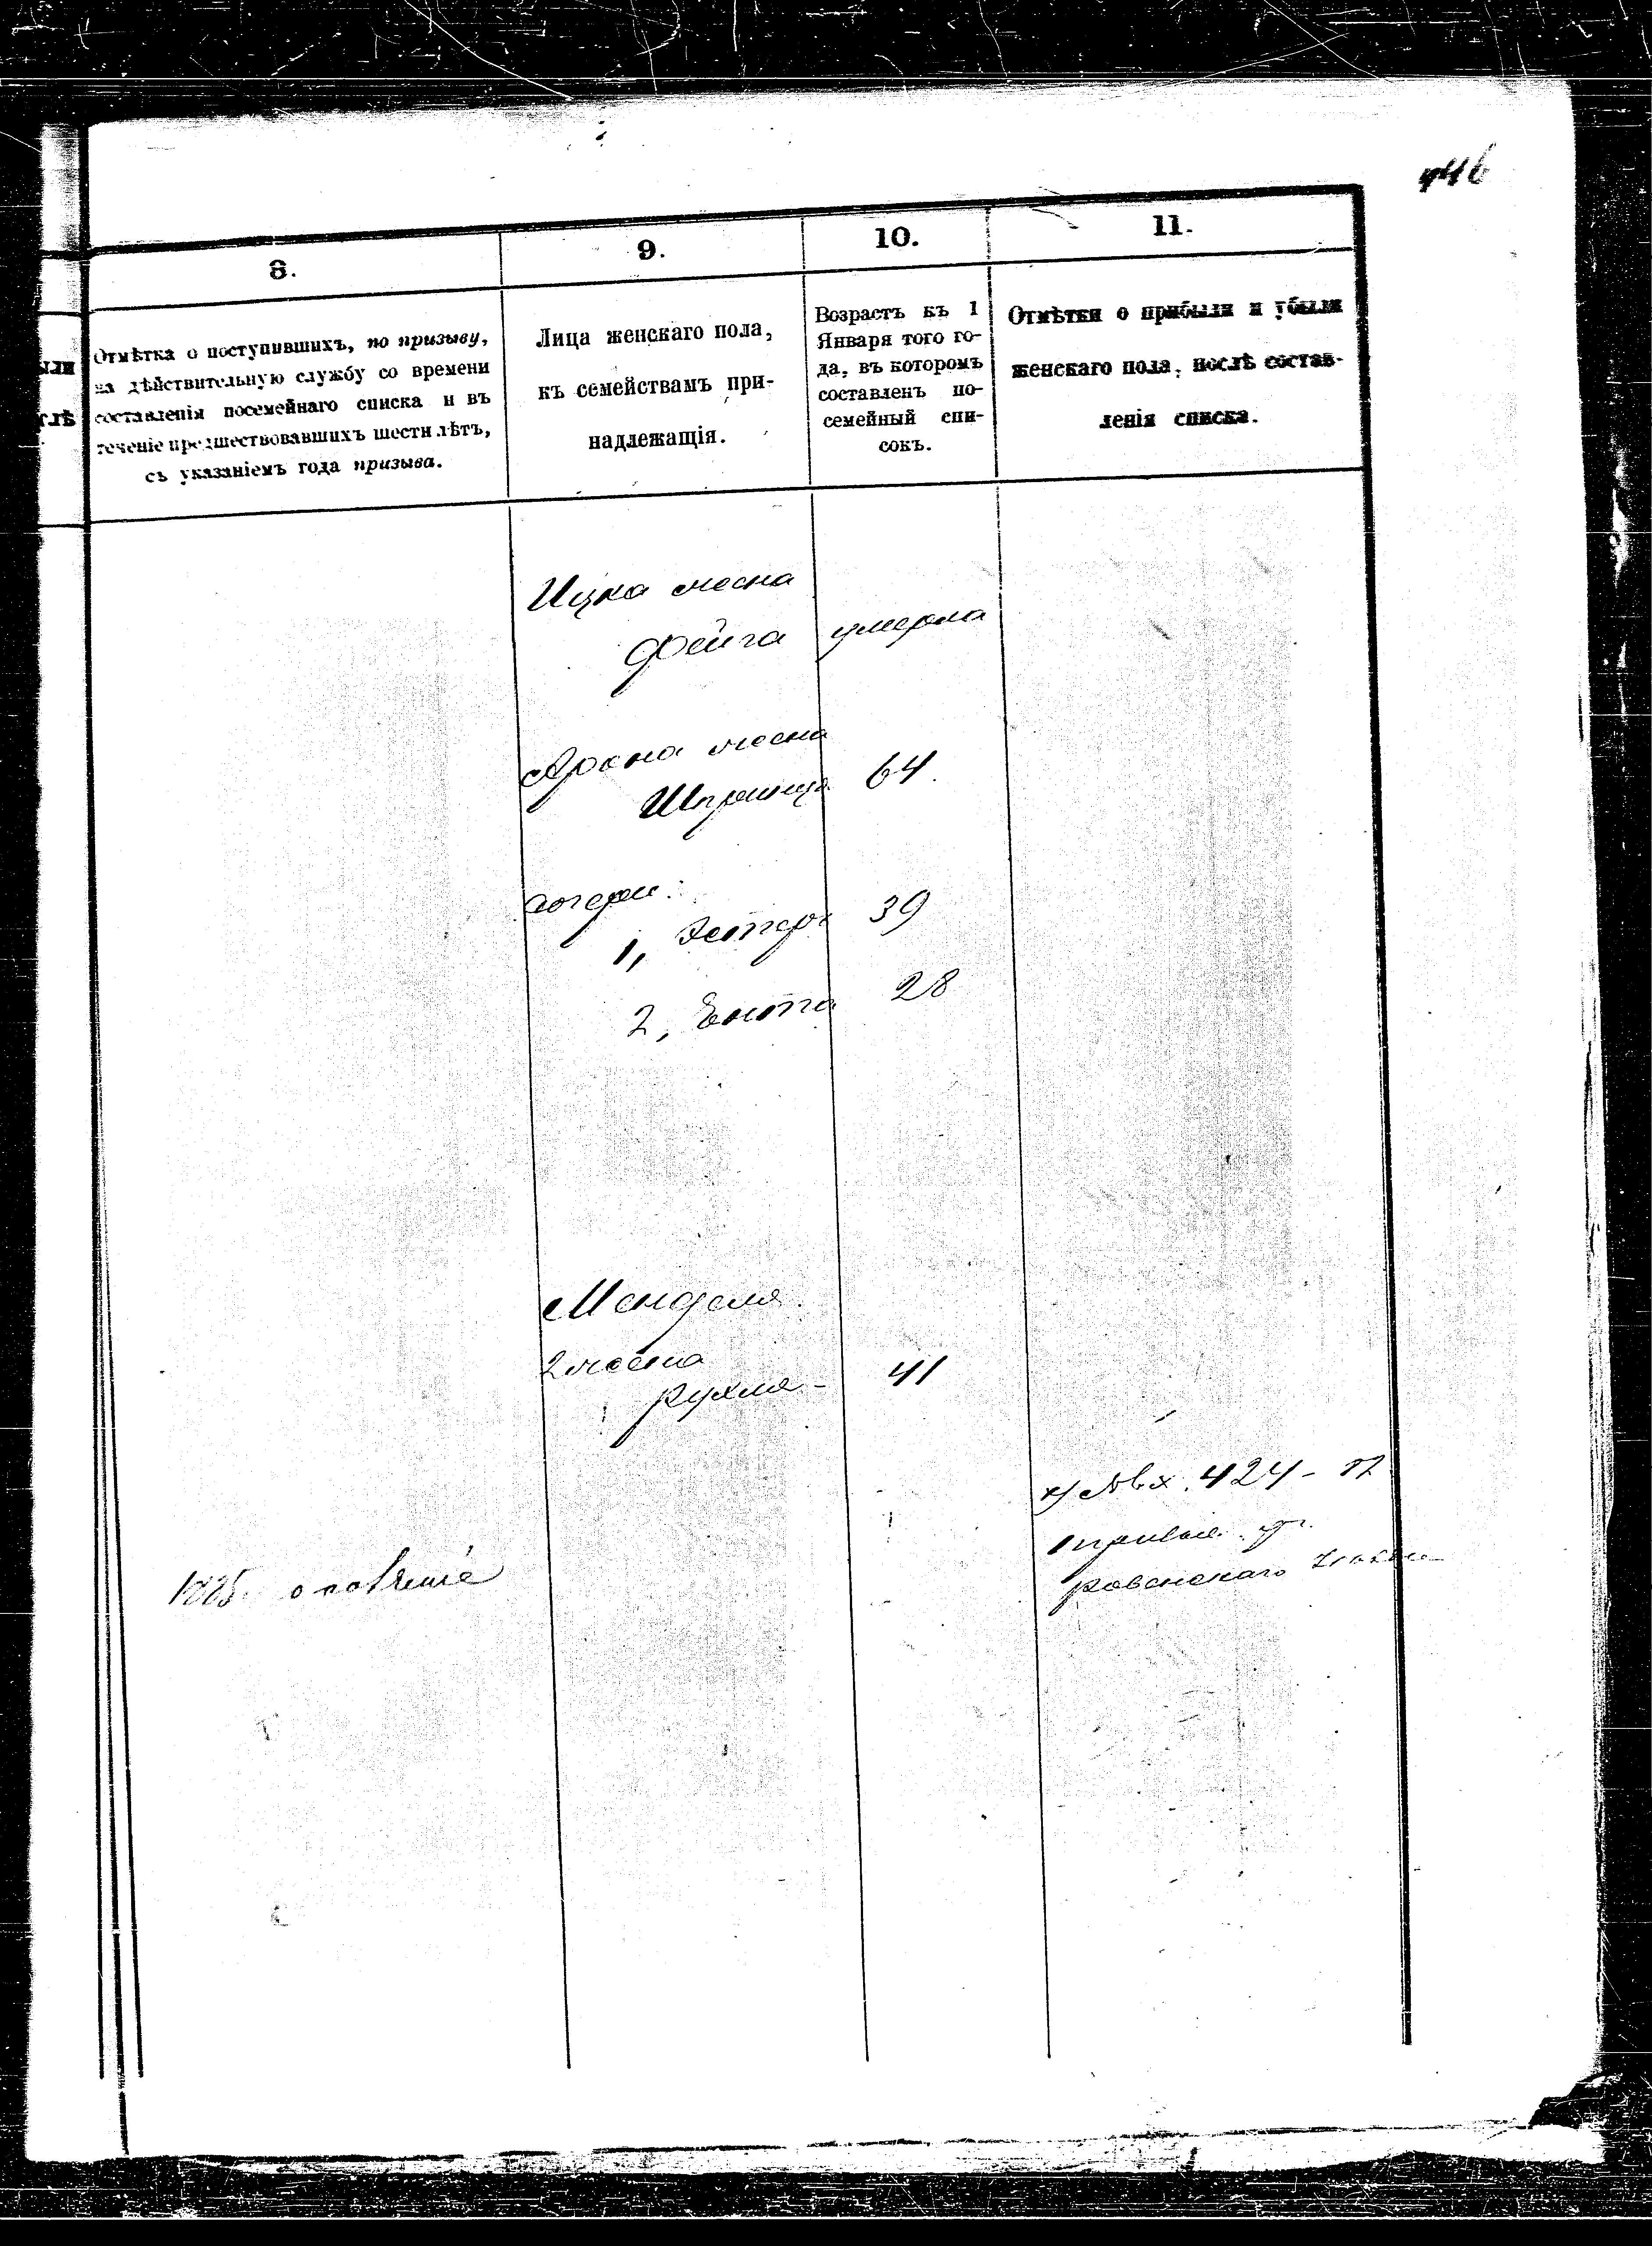 446
8.
9.
10.
11.
Отмѣтка о поступившихъ, по призыву,
на дѣйствительную службу со времени
составленія посемейнаго списка и въ
теченіе предшествовавшихъ шести лѣтъ,
съ указаніемъ года призыва.
Лица женскаго пола,
къ семействамъ при-
надлежащія.
Возрастъ къ 1
Января того го-
да, въ которомъ
составленъ по-
семейный спи-
сокъ.
Отмѣтки о прибыли и убыли
женскаго пола, послѣ состав-
ленія списка.
Ицка жена
Фейга умерла
Арона жена
Шпринца 64
дочери:
1, Эстеръ 39
2, Ента 28
Менделя
2 жена
Рухля - 41
х) 424 -
ровенскаго
1885.